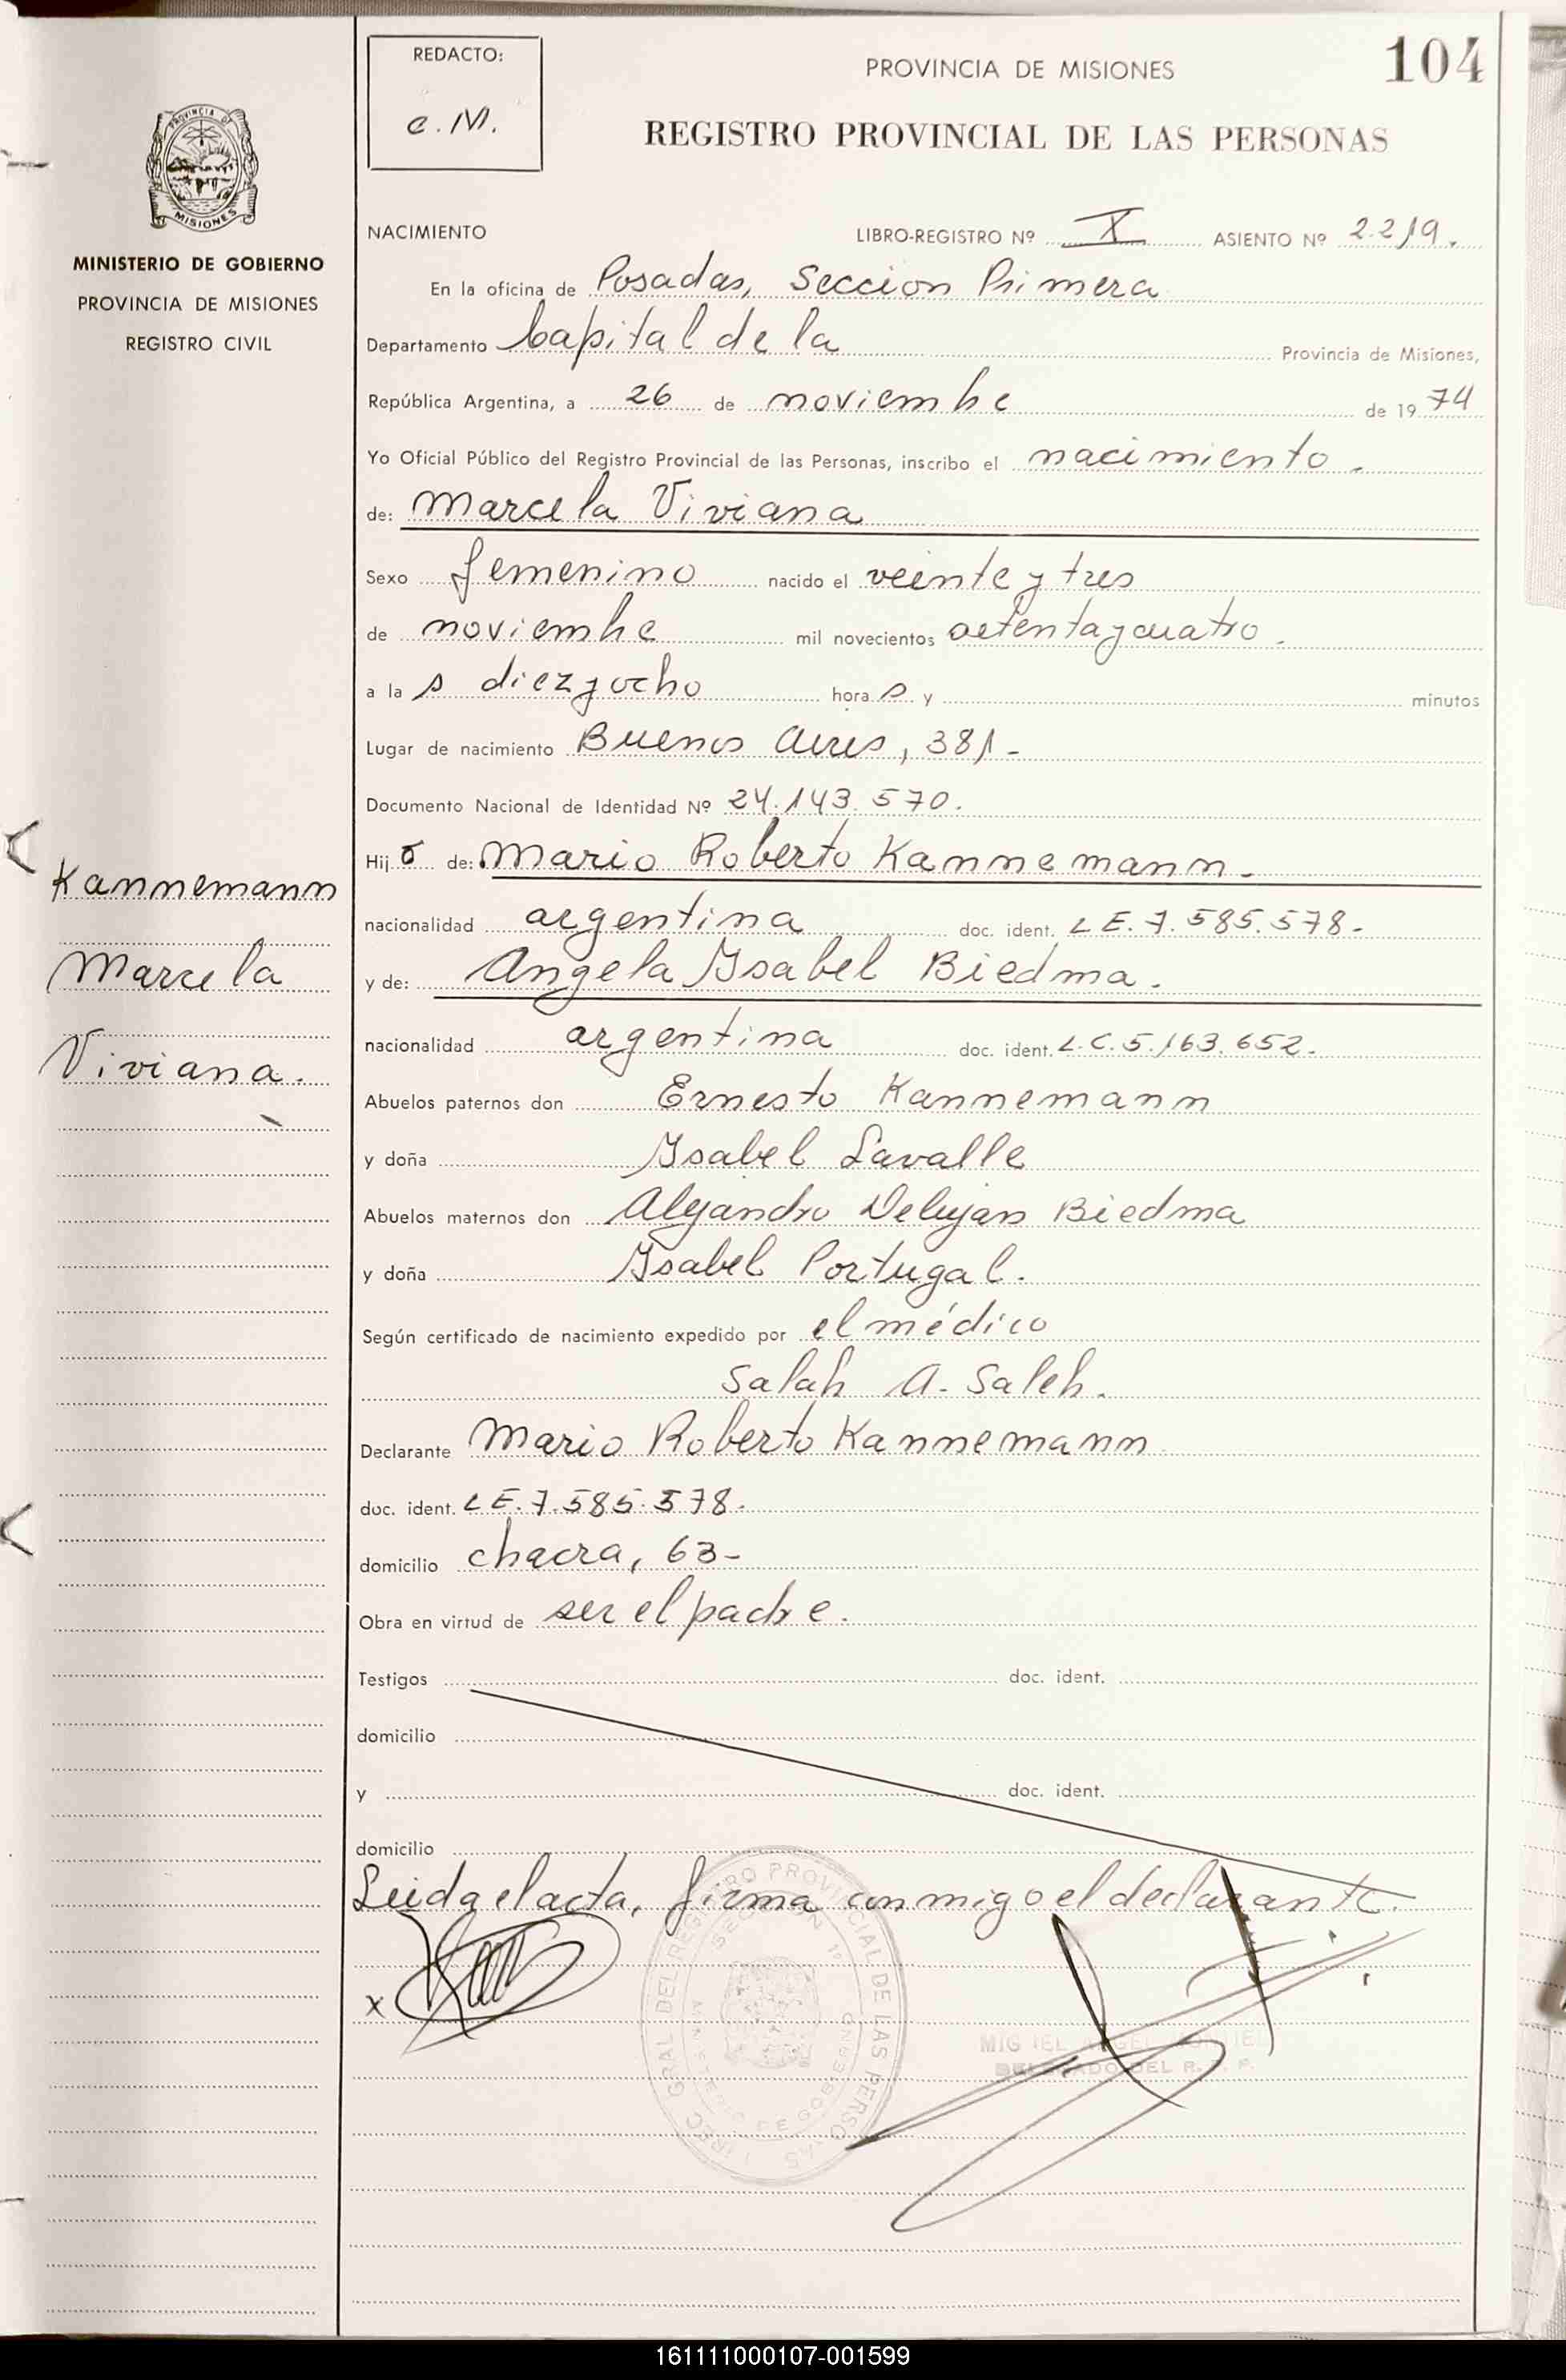 REDACTO:
C. M.
PROVINCIA DE MISIONES
104
REGISTRO PROVINCIAL DE LAS PERSONAS
PROVINCIA DE
MISIONES
MINISTERIO DE GOBIERNO
PROVINCIA DE MISIONES
REGISTRO CIVIL
NACIMIENTO LIBRO-REGISTRO Nº X ASIENTO Nº 2219.
En la oficina de Posadas, Seccion Primera
Departamento Capital de la Provincia de Misiones,
República Argentina, a 26 de noviembre de 1974
Yo Oficial Público del Registro Provincial de las Personas, inscribo el nacimiento.
de: Marcela Viviana
Sexo femenino nacido el veinte y tres
de noviembre mil novecientos setenta y cuatro.
a las diez y ocho horas y minutos
Lugar de nacimiento Buenos Aires, 381-
Documento Nacional de Identidad Nº 24.143.570.
Hij de: Mario Roberto Kannemann.
nacionalidad argentina doc. ident. L E. 7.585.578.-
y de: Angela Ysabel Biedma.
nacionalidad argentina doc. ident. L.C. 5.163.652.
Abuelos paternos don Ernesto Kannemann
y doña Ysabel Lavalle
Abuelos maternos don Alejandro Delujan Biedma
y doña Ysabel Portugal.
Según certificado de nacimiento expedido por el médico
Salah A. Saleh.
Declarante Mario Roberto Kannemann
doc. ident. L E. 7.585.578.
domicilio chacra, 63-
Obra en virtud de ser el padre.
Testigos doc. ident.
domicilio
y doc. ident.
domicilio
Leida el acta, firma conmigo el declarante.
x
Kannemann
Marcela
Viviana.
DIREC. GRAL DEL REGISTRO PROVINCIAL DE LAS PERSONAS
SECCION 1ª
MINISTERIO DE GOBIERNO
MIGUEL ANGEL
DELEGADO DEL R. P. P.
161111000107-001599